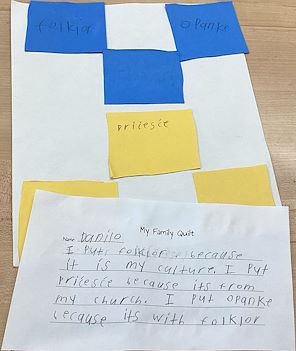 folklor
opanke
pricesce
My Family Quilt
Name Danilo
I put folklor because
it is my culture. I put
pricesce because its from
my church. I put opanke
because its with folklor